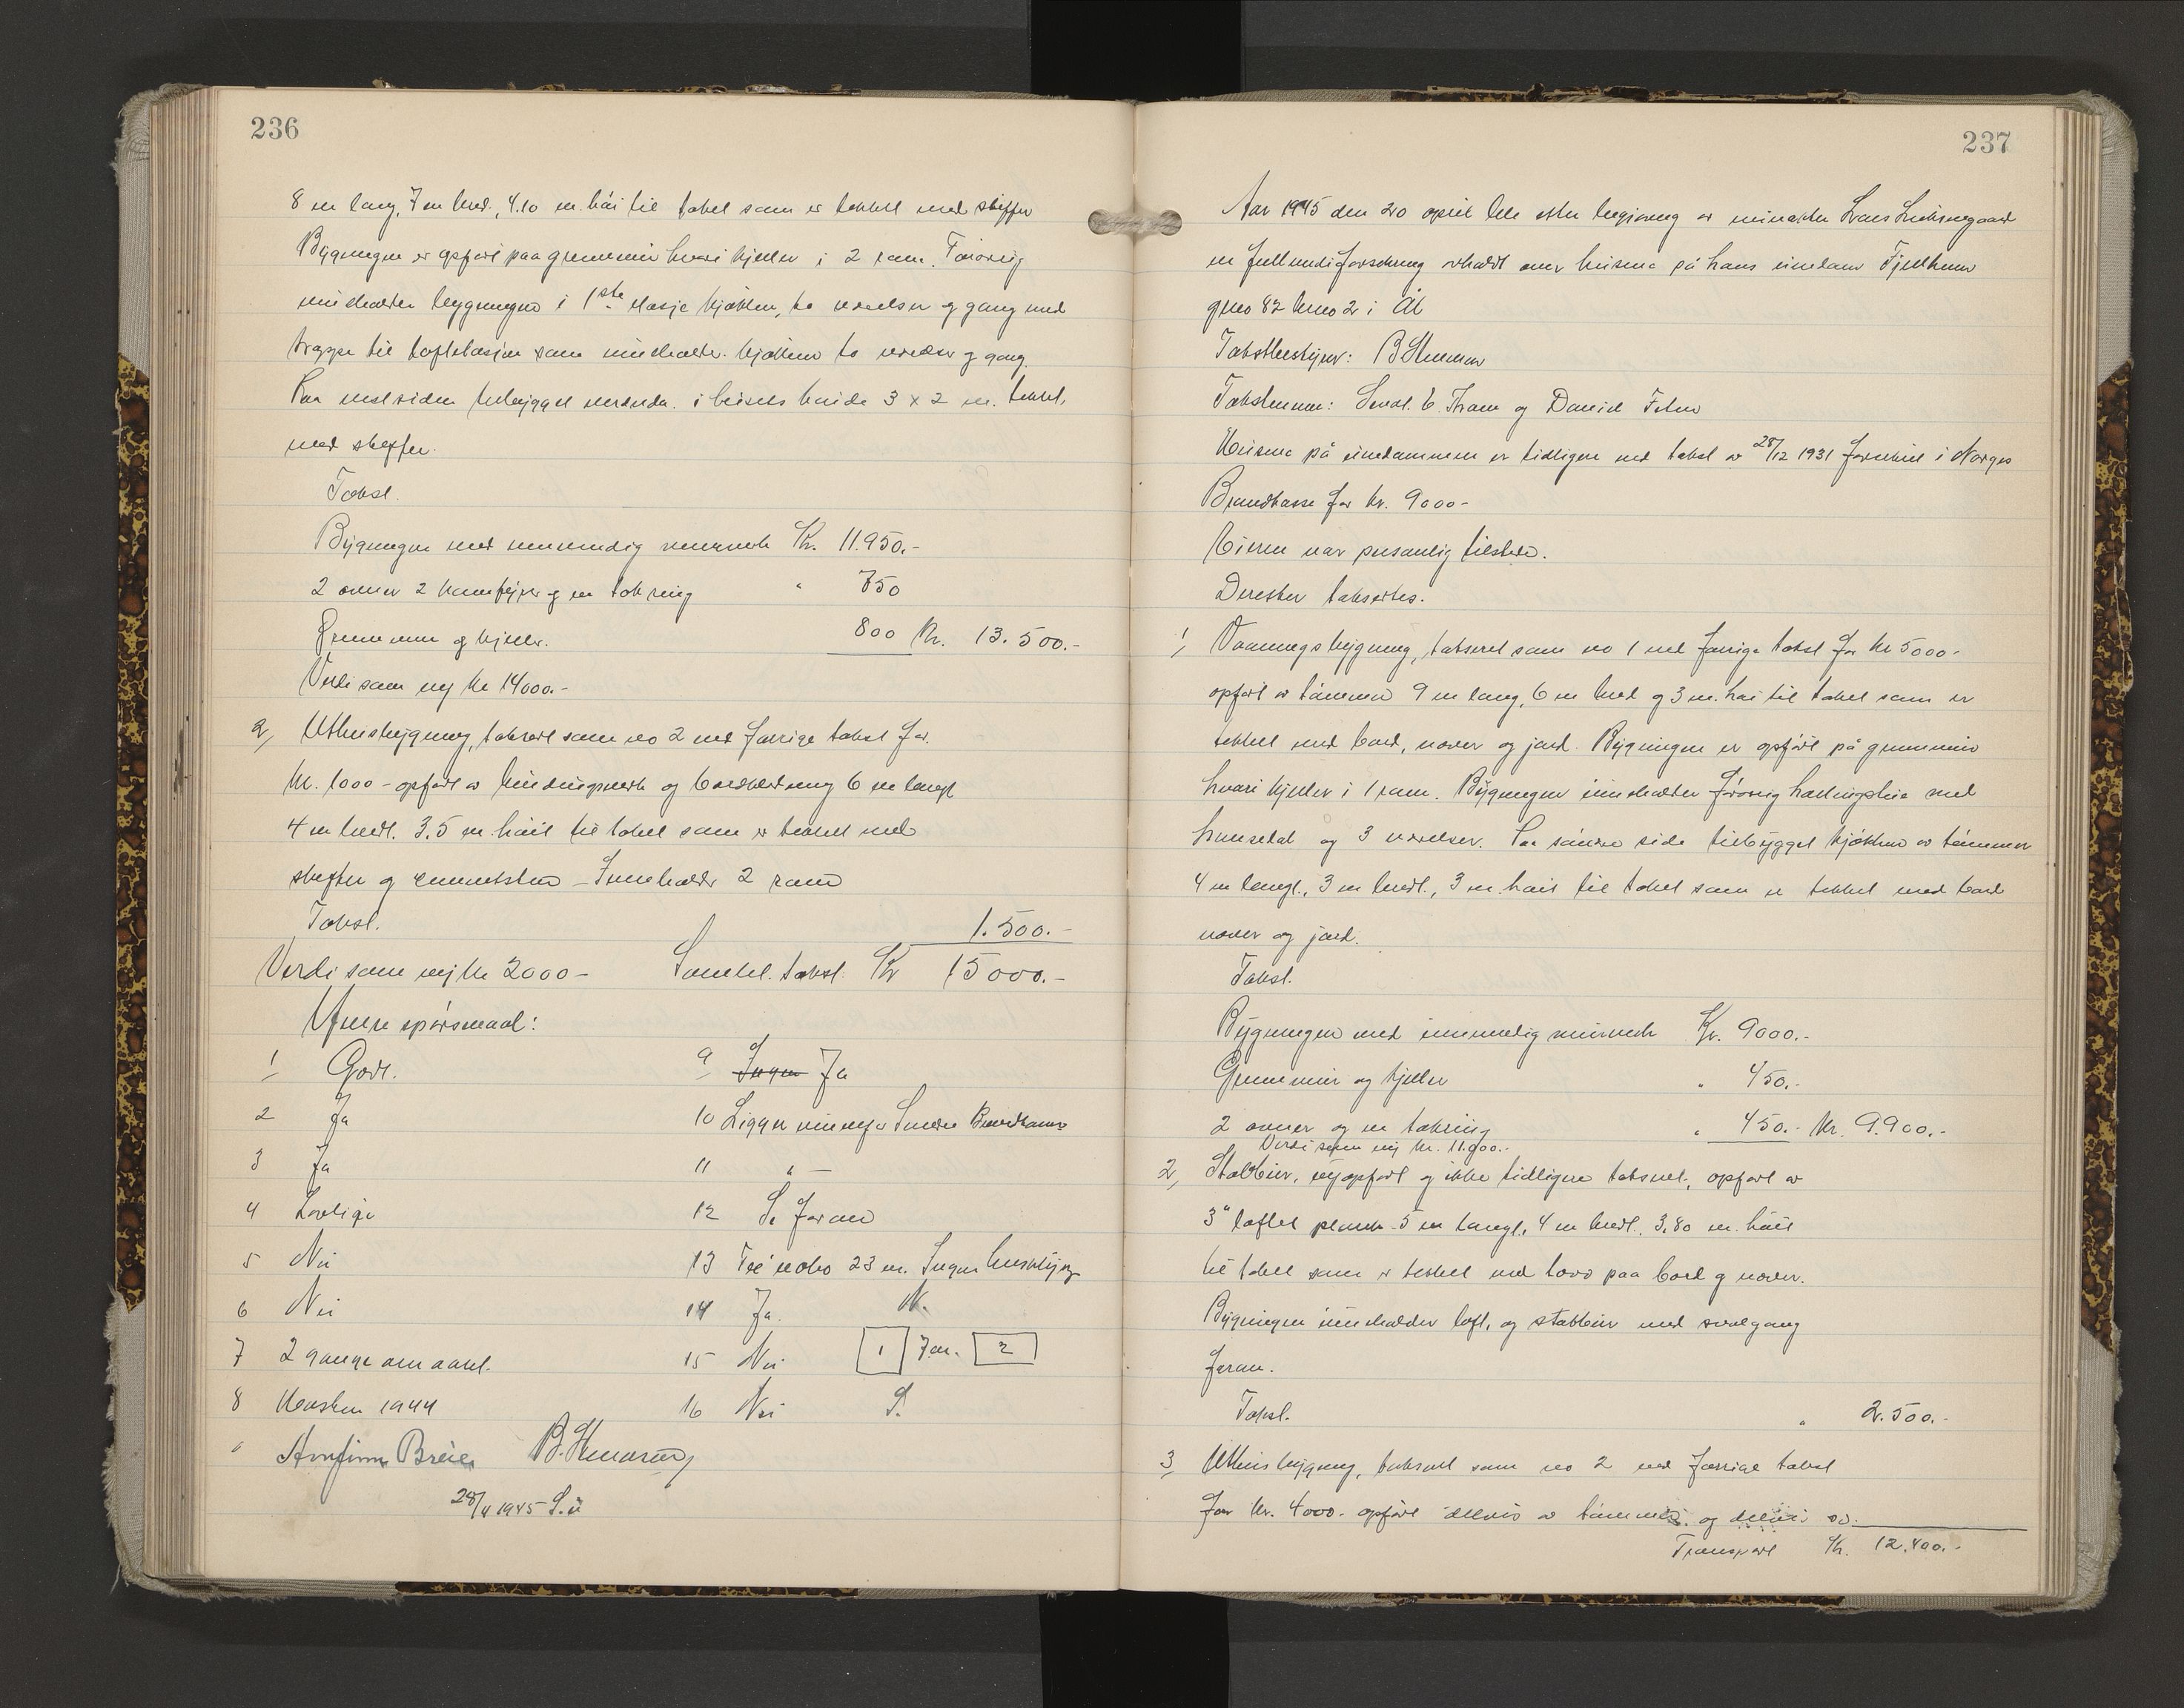 236
8 m lang, 7 m bred, 4.10 m. høi til taket som er tekket med skiffer
Bygningen er opført paa grunnmur hvori kjeller i 2 rom. Forøvrig
inneholder bygningen i 1ste etasje kjøkken, to værelser og gang med
trappe til loftetasjen som inneholder kjøkken to værelser og gang.
Paa vestsiden tilbygget veranda i husets høide 3 x 2 m. tekket
med skiffer.
Takst.
Bygningen med innvendig murverk Kr. 11.950.-
2 ovner 2 komfyrer og en takring " 750
Grunnmur og kjeller. 800 Kr. 13.500.-
Verdi som ny kr 14000.-
2, Uthusbygning, taksert som no 2 ved forrige takst for
kr. 1000 - opført av bindingsverk og bordkledning 6 m langt
4 m bredt. 3.5 m høit til taket som er tekket med
skiffer og cementsten - Inneholder 2 rom
Takst. 1.500.-
Verdi som ny kr 2000 - Samlet takst Kr 15000.-
Øvrige spørsmaal:
1 Godt. 9 Ingen Ja
2 Ja 10 Ligger Brandkasse
3 Ja 11 " -
4 Lovlige 12 Se foran
5 Nei 13 Til nabo 23 m. Ingen
6 Nei 14 Ja. N.
7 2 gange om aaret. 15 Nei 1 7 m. 2
8 Høsten 1944 16 Nei S.
Arnfinn Breie B. Hmoen
28/4 1945 S. u
237
Aar 1945 den 20 april ble etter begjæring av Lars
en fullverdiforsikring avholdt over husene på hans eiendom Fjellheim
gno 82 bno 2 i Ål
Takstbestyrer: B
Takstmenn: C. Tham og Daniel
Husene på eiendommen er tidligere ved takst av 28/12 1931 forsikret i Norges
Brandkasse for kr. 9000 -
Eieren var personlig tilstede.
Derefter taksertes.
1, Vaaningsbygning, taksert som no 1 ved forrige takst for kr 5000-
opført av tømmer 9 m lang, 6 m bred og 3 m. høi til taket som er
tekket med bord, næver og jord. Bygningen er opført på grunnmur
hvori kjeller i 1 rom. Bygningen inneholder forøvrig hallingstue med
og 3 værelser. Paa søndre side tilbygget kjøkken av tømmer
4 m langt., 3 m bredt., 3 m. høit til taket som er tekket med bord
næver og jord.
Takst.
Bygningen med innvendig murverk Kr. 9000.-
Grunnmur og kjeller " 450.-
2 ovner og en takring " 450.- Kr. 9.900.-
Verdi som ny kr. 11.900.-
2, Stabbur, nyopført og ikke tidligere taksert, opført av
3" laftet plank 5 m langt, 4 m bredt. 3.80 m. høit
til taket som er tekket med torv paa bord og næver.
Bygningen inneholder loft, og stabbur med svalgang
foran.
Takst. " 2.500.-
3 Uthusbygning, taksert som no 2 ved forrige takst
for kr. 4000.- opført delvis av tømmer og delvis av
Transport Kr. 12.400.-